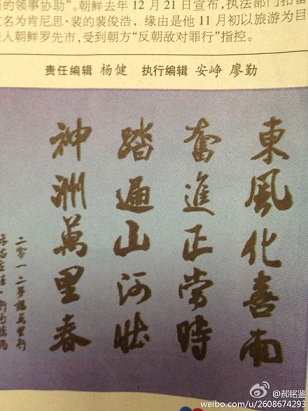 的领事协助”。朝鲜去年 12 月 21 日宣布，执法部门扣留
文名为肯尼思·裴的裴俊浩，缘由是他 11 月初以旅游为目
入朝鲜罗先市，受到朝方“反朝敌对罪行”指控。
责任编辑 杨健 执行编辑 安峥 廖勤
東風化喜雨
奮進正當時
踏遍山河壯
神洲萬里春
二零一二年
@郝铭鉴
weibo.com/u/2608674293